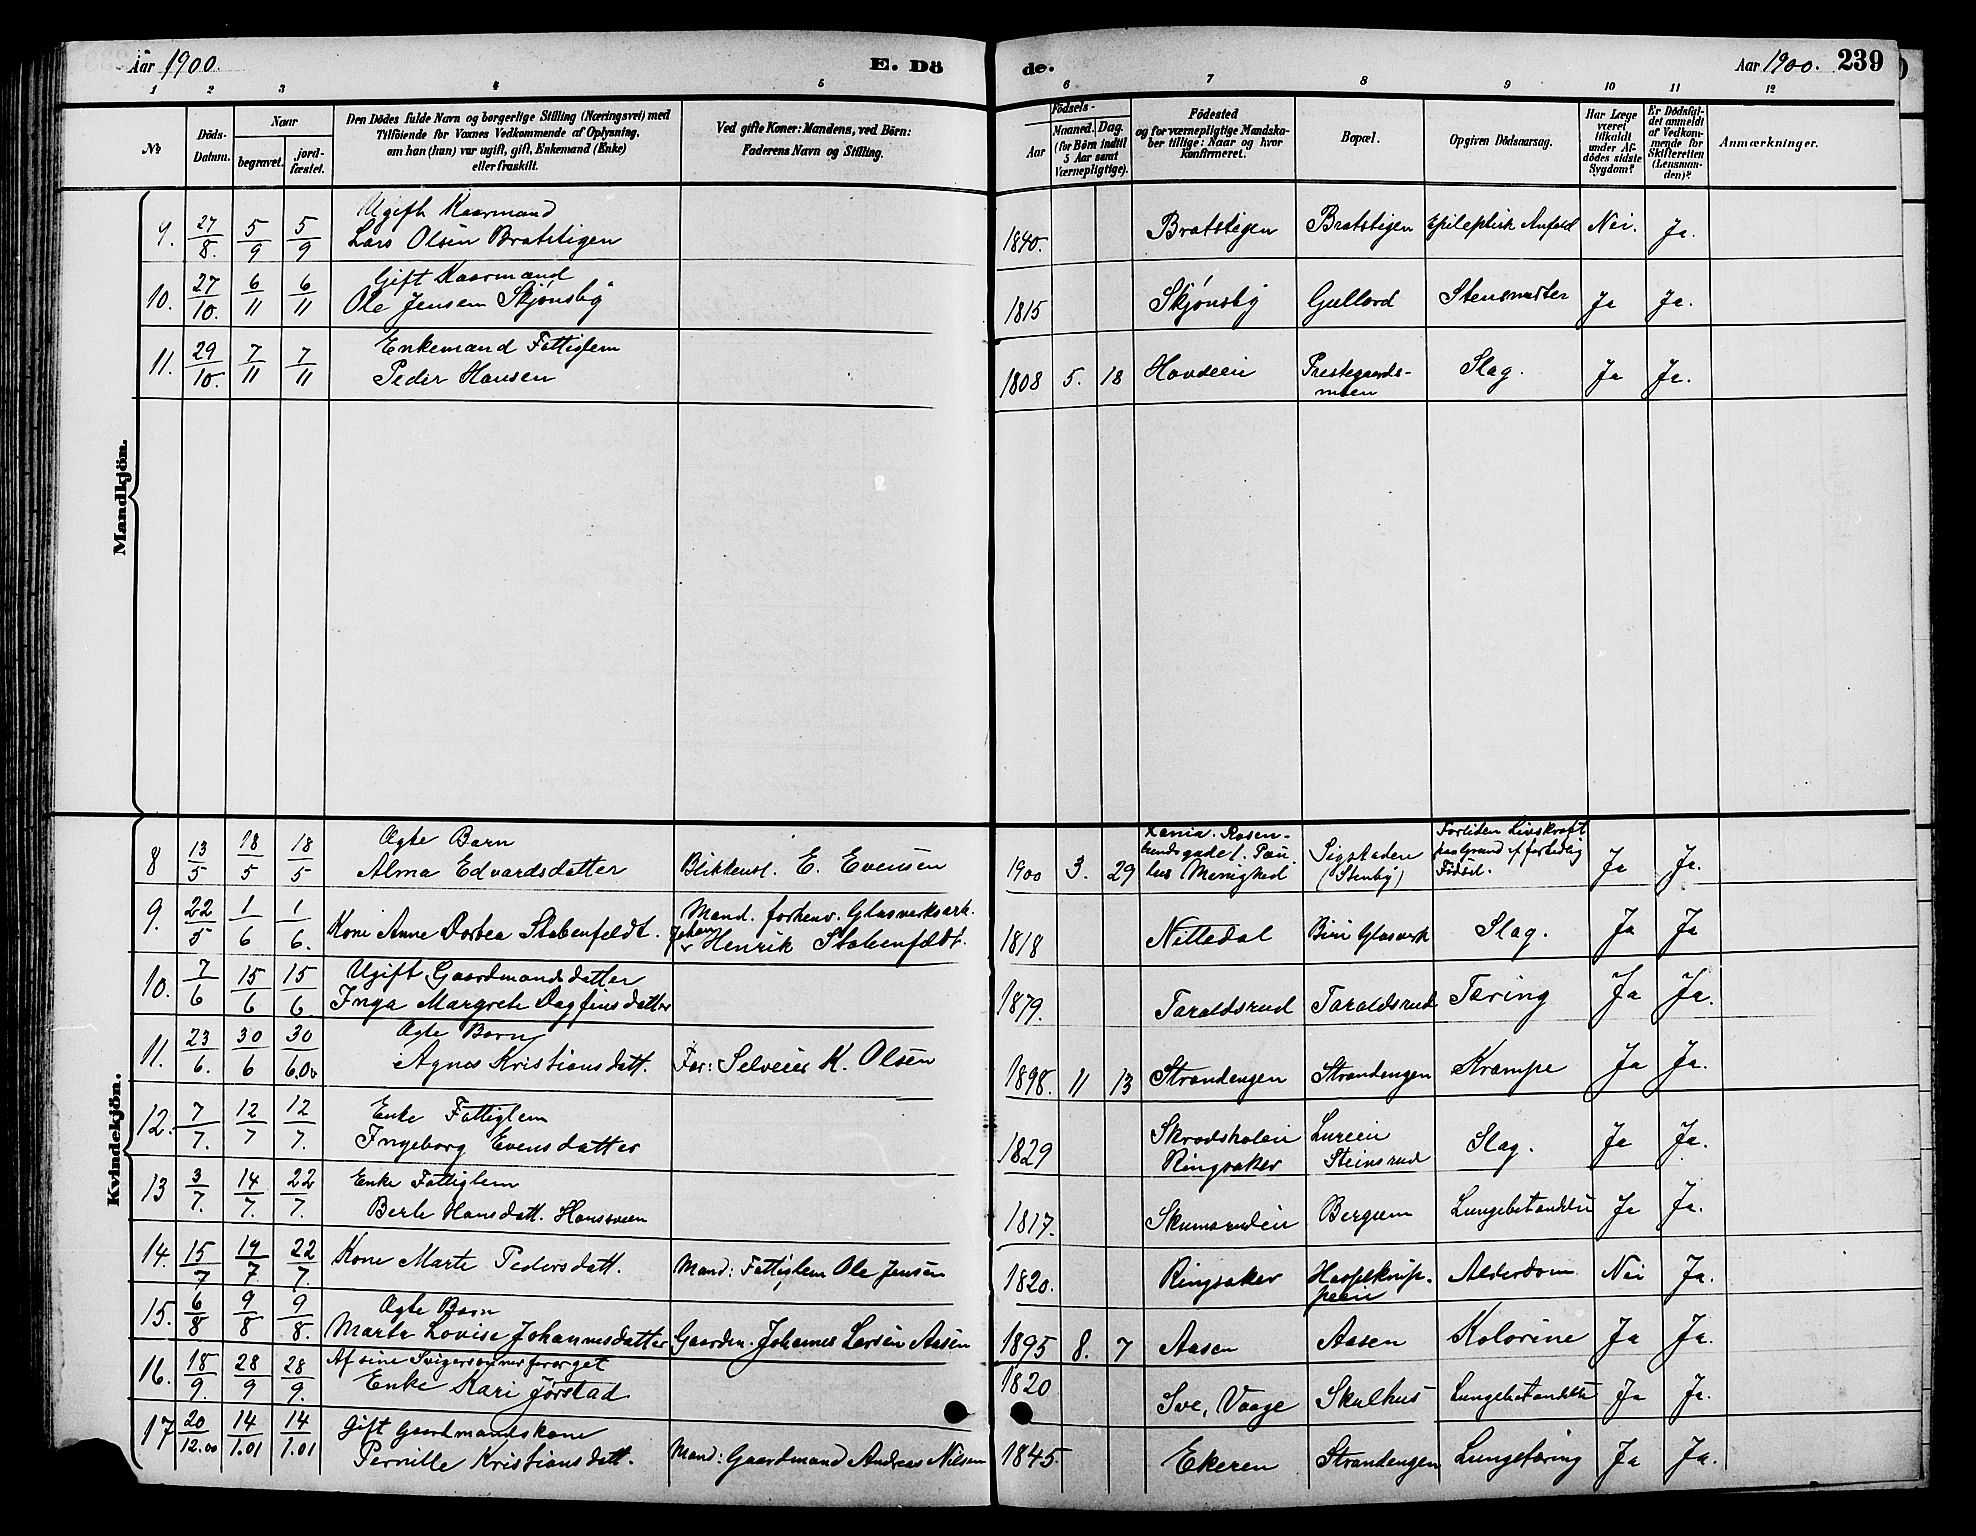 Aar 1900. E. Dö de. Aar 1900. 239
1 2 3 4 5 6 7 8 9 10 11 12
No
Döds-Datum.
Naar
begravet.
jord-fæstet.
Den Dödes fulde Navn og borgerlige Stilling (Næringsvei) med
Tilföiende for Voxnes Vedkommende af Oplysning,
om han (hun) var ugift, gift, Enkemand (Enke)
eller fraskilt.
Ved gifte Koner: Mandens, ved Börn:
Faderens Navn og Stilling.
Födsels-
Aar
Maaned. Dag.
(for Börn indtil
5 Aar samt
Værnepligtige).
Födested
og for værnepligtige Mandska-
ber tillige: Naar og hvor
konfirmeret.
Bopæl.
Opgiven Dödsaarsag.
Har Læge
været
tilkaldt
under Af-
dödes sidste
Sygdom?
Er Dödsfal-
det anmeldt
af Vedkom-
mende for
Skifteretten
(Lensman-
den)?
Anmærkninger.
Mandkjön.
9. 27/8. 5/9 5/9 Ugift Kaarmand
Lars Olsen Bratstigen 1840. Bratstigen Bratstigen Epileptisk Anfald Nei. Ja.
10. 27/10. 6/11 6/11 Gift Kaarmand
Ole Jensen Skjønsby 1815 Skjønsby Gullord Stensmerter Ja Ja.
11. 29/10. 7/11 7/11 Enkemand Fattiglem
Peder Hansen 1808 5. 18 Hovdeeie Prestegaards-
moen Slag. Ja Ja.
Kvindekjön.
8 13/5 18/5 18/5 Ægte Barn
Alma Edvardsdatter Blikkensl. E. Evensen 1900 3. 29 Xania. Rosen-
Menighed Sigstadeie
(Stenby) Forliden Livskraft
paa Grund af fortidlig
Födsel. Ja Ja.
9. 22/5 1/6 1/6. Kone Anne Dortea Stabenfeldt. Mand. forhenv. Glasverksarb.
Johan
Henrik Stabenfeldt. 1818 Nittedal Biri Glasverk Slag. Ja Ja
10. 7/6 15/6 15/6. Ugift Gaardmandsdatter
Inga Margrete Dagfinsdatter 1879. Taraldsrud Taraldsrud Tæring Ja Ja.
11. 23/6. 30/6 30/6.00 Ægte Barn
Agnes Kristiansdatt. Far: Selveier K. Olsen 1898. 11 13 Strandengen Strandengen Krampe Ja Ja.
12. 7/7. 12/7 12/7. Enke Fattiglem
Ingeborg Evensdatter 1829 Skrodsholeie
Ringsaker Lureeie
Steinsrud Slag. Ja Ja.
13 3/7. 14/7. 22/7. Enke Fattiglem
Berte Hansdatt. Hansveen 1817. Skumsrudeie Bergum Lungebetændelse Ja Ja.
14. 15/7 19/7 22/7. Kone Marte Pedersdatt. Mand: Fattiglem Ole Jensen 1820. Ringsaker Alderdom Nei Ja.
15. 6/8 9/8 9/8. Ægte Barn
Marte Lovise Johannesdatter Gaardm. Johannes Larsen Aasen 1895 8. 7 Aasen Aasen Kolorine Ja Ja.
16. 18/9. 28/9 28/9. Af sine Svigersønner forsørget
Enke Kari Jørstad 1820 Sve, Vaage Skulhus Lungebetændelse Ja Ja.
17 20/12.00 14/1.01 14/1.01 Gift Gaardmandskone
Pernille Kristiansdatt. Mand: Gaardmand Andreas Nilsen 1845. Ekeren Strandengen Lungetæring Ja Ja.